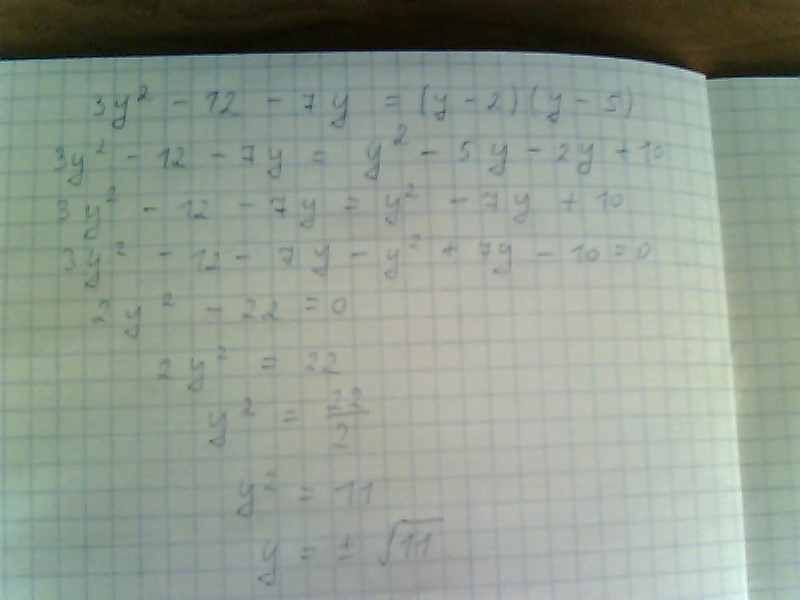 3y² - 12 - 7y = (y - 2)(y - 5)
3y² - 12 - 7y = y² - 5y - 2y + 10
3y² - 12 - 7y = y² - 7y + 10
3y² - 12 - 7y - y² + 7y - 10 = 0
2y² - 22 = 0
2y² = 22
y² = 22/2
y² = 11
y = ± √11